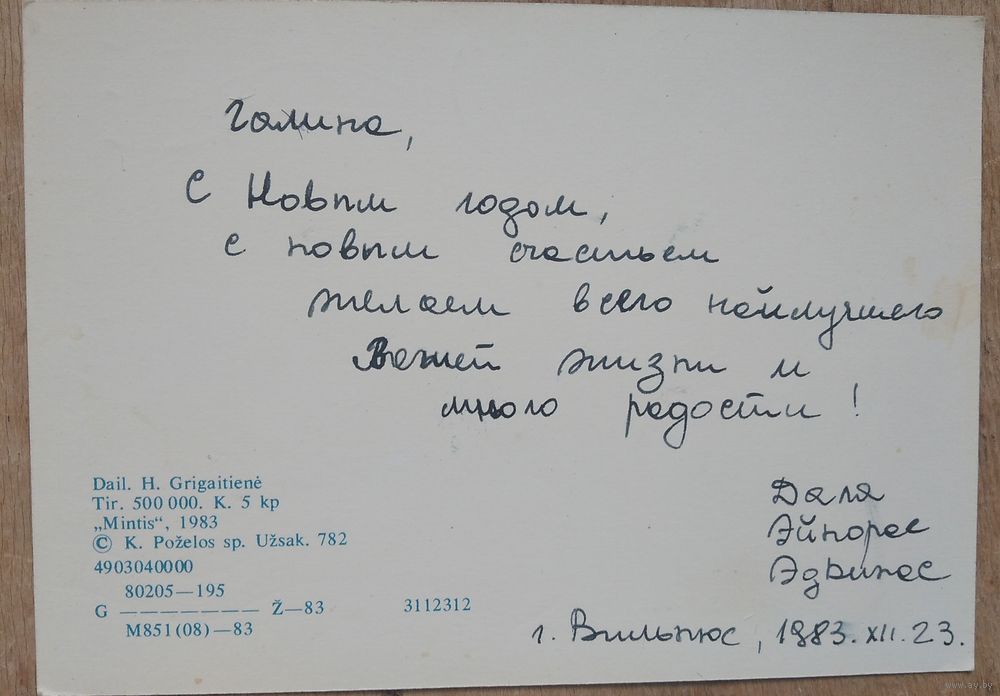 Галина,
С Новым годом,
с новым счастьем
желаем всего найлучшего
Вашей жизни и
много радости!
Даля
Эйнорас
Эдвинас
г. Вильнюс, 1983. XII. 23.
Dail. H. Grigaitienė
Tir. 500 000. K. 5 kp
„Mintis“, 1983
© K. Poželos sp. Užsak. 782
4903040000
80205—195
G ——————— Ž—83 3112312
M851(08)—83
www.ay.by